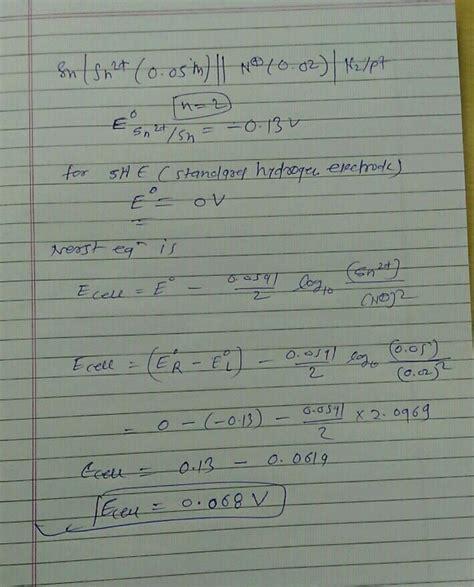 Sn | Sn²⁺ (0.05 m) || H⊕ (0.02) | H₂/pt
n=2
E⁰ Sn²⁺/Sn = −0.13 V
for SHE (standard hydrogen electrode)
E⁰ = 0V
Nerst eqⁿ is
Ecell = E⁰ − 0.0591/2 log₁₀ (Sn²⁺)/(H⊕)²
Ecell = (E⁰R − E⁰L) − 0.0591/2 log₁₀ (0.05)/(0.02)²
= 0 − (−0.13) − 0.0591/2 × 2.0969
Ecell = 0.13 − 0.0619
Ecell = 0.068 V